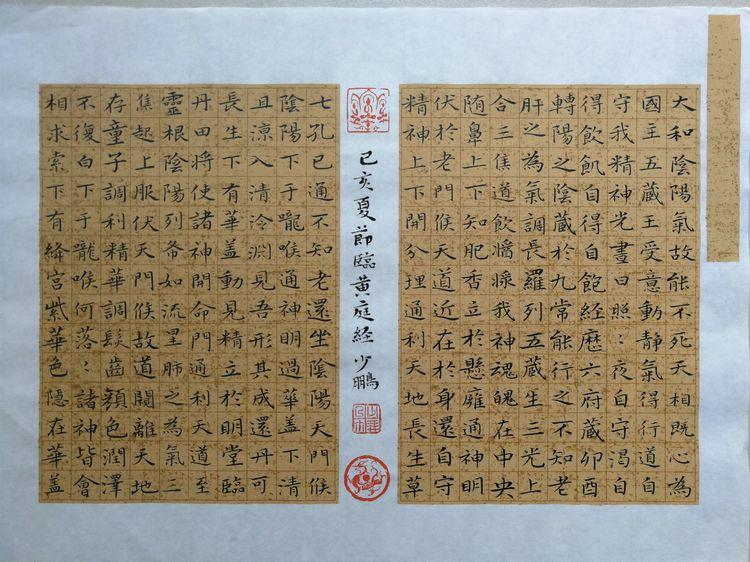 大和陰陽氣故能不死天相既心為
國主五蔵王受意動静氣得行道自
守我精神光晝日照〻夜自守渴自
得飲飢自得自飽經歷六府蔵卯酉
轉陽之陰蔵於九常能行之不知老
肝之為氣調長羅列五蔵生三光上
合三焦道飲醬漿我神魂魄在中央
随鼻上下知肥香立於懸雍通神明
伏於老門候天道近在於身還自守
精神上下開分理通利天地長生草
己亥夏節臨黄庭経少鵬
七孔已通不知老還坐陰陽天門候
陰陽下于嚨喉通神明過華盖下清
且涼入清泠淵見吾形其成還丹可
長生下有華盖動見精立於明堂臨
丹田將使諸神開命門通利天道至
靈根陰陽列布如流星肺之為氣三
焦起上服伏天門候故道闚離天地
存童子調利精華調髮齒顔色潤澤
不復白下于嚨喉何落〻諸神皆會
相求索下有絳宮紫華色隱在華盖